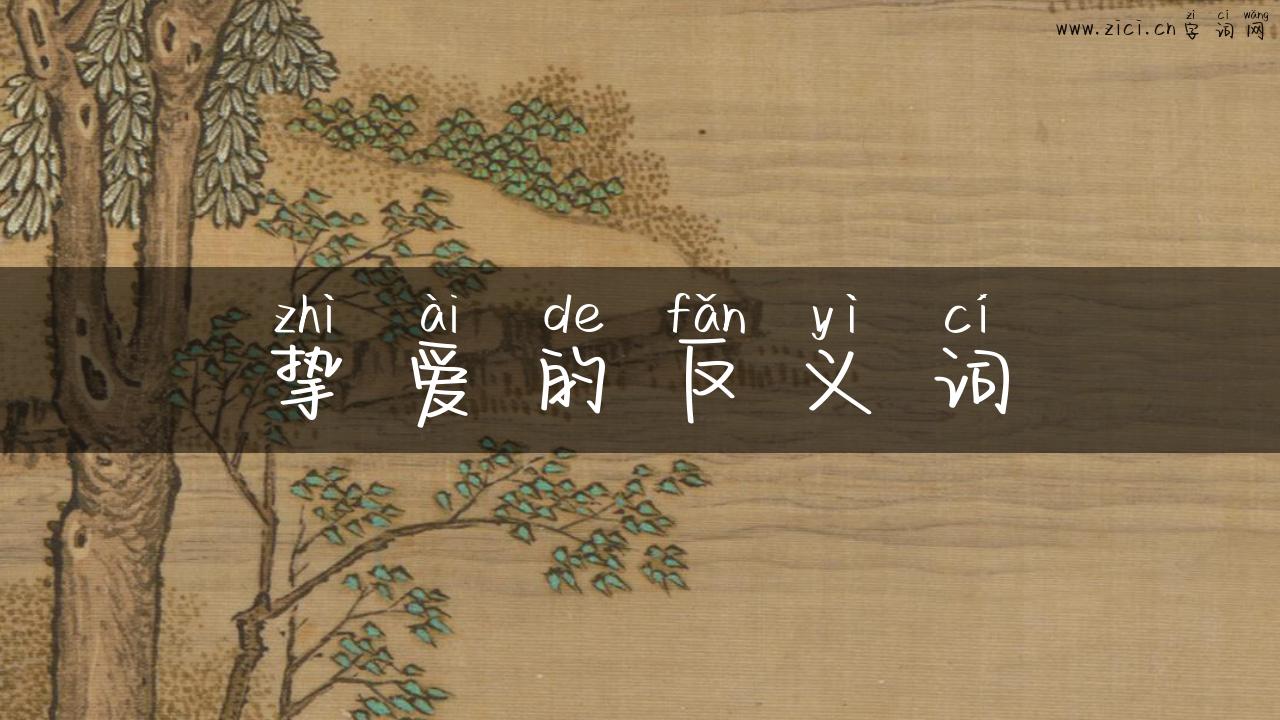 zì cí wǎng
www.zici.cn 字词网
zhì ài de fǎn yì cí
挚爱的反义词